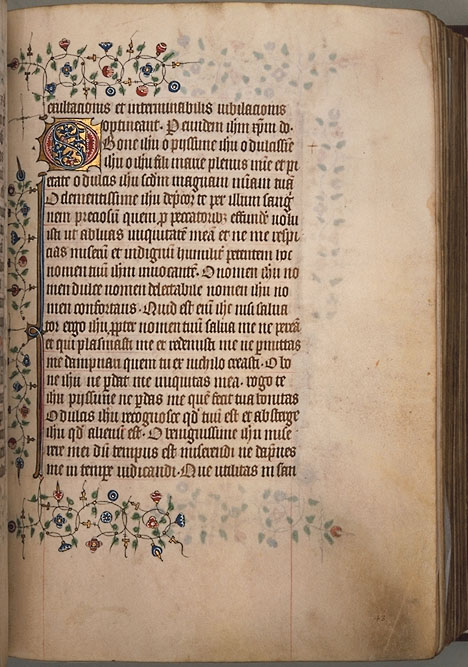 exultacionis et interminabilis iubilacionis
optineant. P eundem ihm xpm do.
O Bone ihu o pyssime ihu o dulcissīe
ihu o ihu fili marie plenus mīe et pi
etate o dulcis ihu scdm magnam mīam tuā
O clementissime ihu deprecor te per illum sang
nem preciosū quem p peccatoribz effundē volu
isti ut abluas iniquitatē meā et ne me respi
cias miserū et indignū humilit petentem hoc
nomen tuū ihm invocantē. O nomen ihu no
men dulce nomen delectabile nomen ihu no
men confortans. Quid est enī ihc nisi salua
tor ergo ihu ppter nomen tuū salua me ne pereā
et qui plasmasti me et redemisti me ne pmittas
me dampnari quem tu ex nichilo creasti. O bo
ne ihu ne pdat me iniquitas mea. rogo te
ihu pyssime ne pdas me quē fecit tua bonitas
O dulcis ihu recognosce qd tuū est et absterge
ihu qd alienū est. O benignissime ihu mise
rere mei dū tempus est miserendi ne dāpnes
me in tempe iudicandi. Que utilitas in san